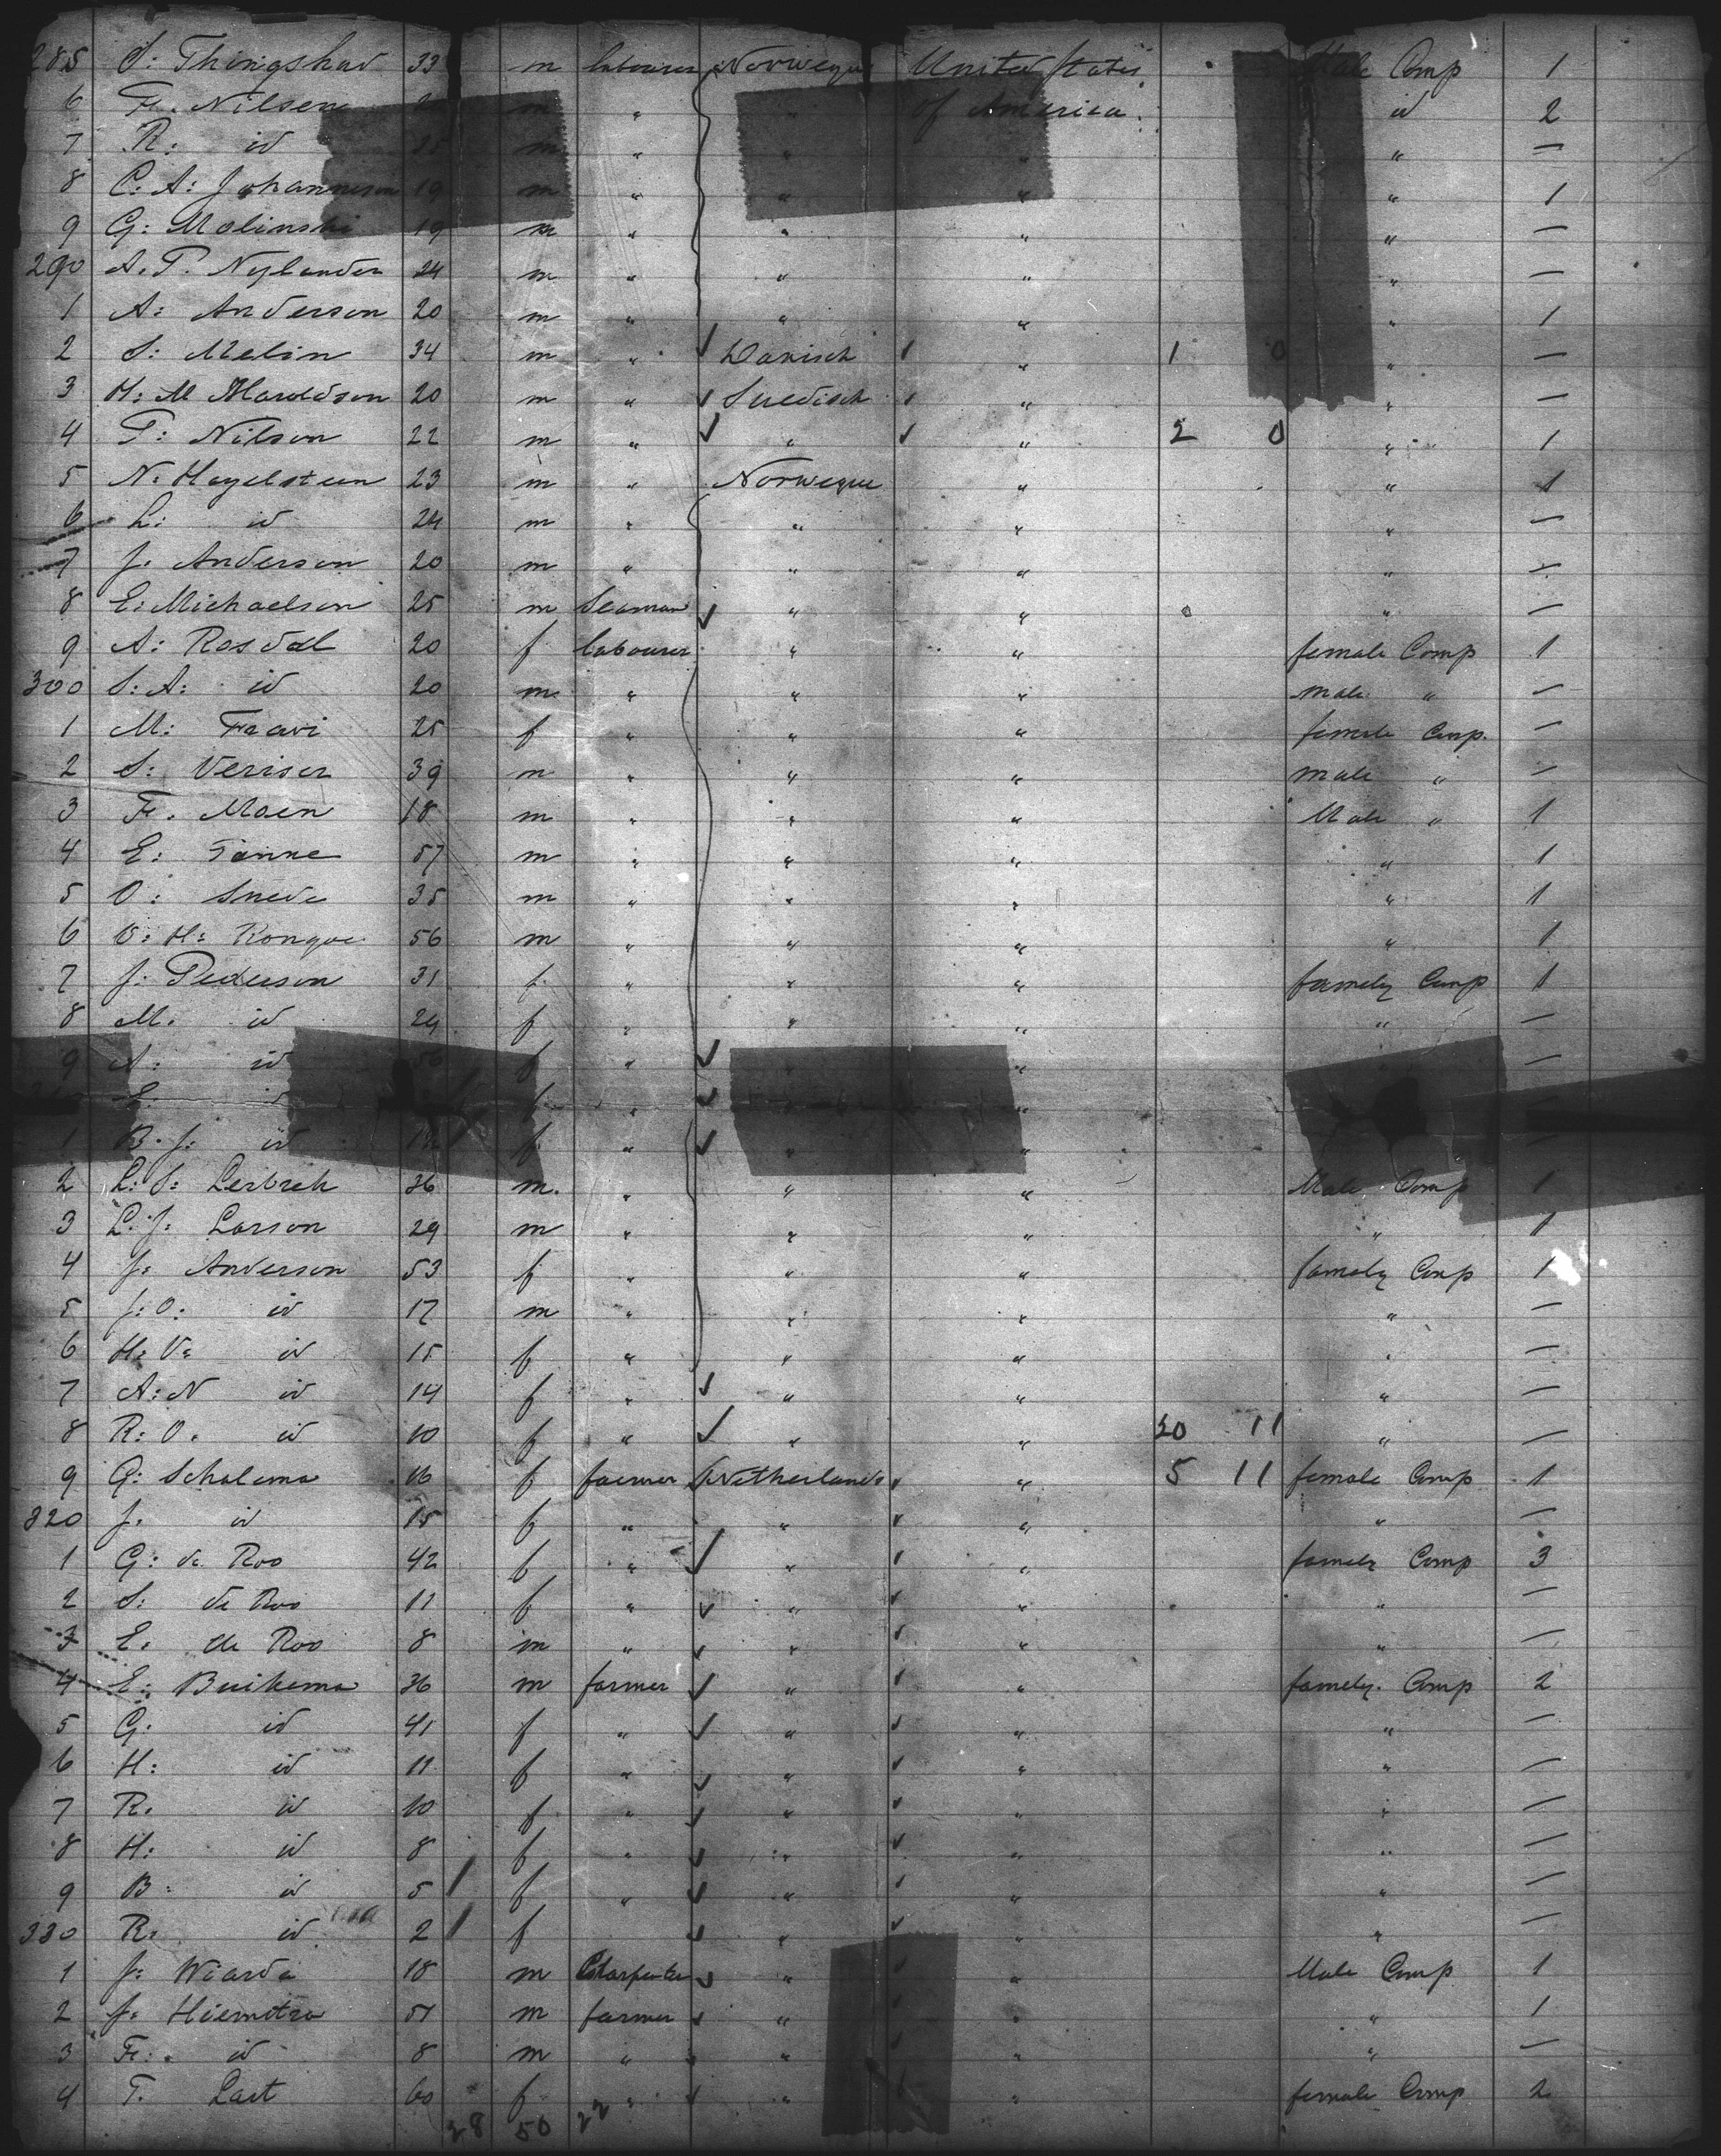 285 S: Thingshav 33 m labourer Norwegue United States Male Comp 1
6 F. Nilsen m " " of America. id 2
7 R: id 25 m " " " " —
8 C. A: Johanneson 19 m " " " " 1
9 G: Molinski 19 m " " " " —
290 A. P. Nylander 24 m " " " " —
1 A: Anderson 20 m " " " " 1
2 S: Melin 34 m " Danisch " 1 0 " —
3 H: M Haroldson 20 m " Suedisch " " —
4 P: Nilson 22 m " " " 2 0 " 1
5 N: Hagelsteen 23 m " Norwegue " " 1
6 L: id 24 m " " " " —
7 J. Anderson 20 m " " " " —
8 E: Michaelson 25 m Seaman " " " —
9 A: Rosdal 20 f labourer " " female Comp 1
300 S: A: id 20 m " " " male " —
1 M: Fravi 25 f " " " female Comp. —
2 S: Veriser 39 m " " " male " —
3 F. Moen 18 m " " " Male " 1
4 E: Tanne 57 m " " " " 1
5 O: Snede 35 m " " " " 1
6 O: H: Kongve 56 m " " " " 1
7 J: Pederson 31 f " " " famely Comp 1
8 M. id 24 f " " " " —
9 A: id 56 f " " " —
E. id f " " —
1 B. J: id 12 f " " " —
2 L: S: 36 m. " " " Male Comp 1
3 L. J: Larson 29 m " " " " 1
4 J: Anderson 53 f " " " famely Comp 1
5 J: O: id 17 m " " " " —
6 H: V: id 15 f " " " " —
7 A: N id 14 f " " " " —
8 R: O. id 10 f " " " 20 11 " —
9 G: Schalema 16 f faermer Netherlands " 5 11 female Comp 1
320 J. id 15 f " " " " —
1 G: de Roo 42 f " " " famely Comp 3
2 S: de Roo 11 f " " " " —
3 E. de Roo 8 m " " " " —
4 E: Buikema 36 m farmer " " famely. Comp 2
5 G. id 41 f " " " " —
6 H: id 11 f " " " " —
7 R. id 10 f " " " " —
8 H: id 8 f " " " " —
9 B: id 5 f " " " " —
330 R. id 2 f " " " —
1 J: Wiarda 18 m Charpenter " " Male Comp 1
2 J. Hiemstra 51 m farmer " " " 1
3 F: id 8 m " " " " —
4 T. Last 60 f " " " female Comp 2
28 50 22